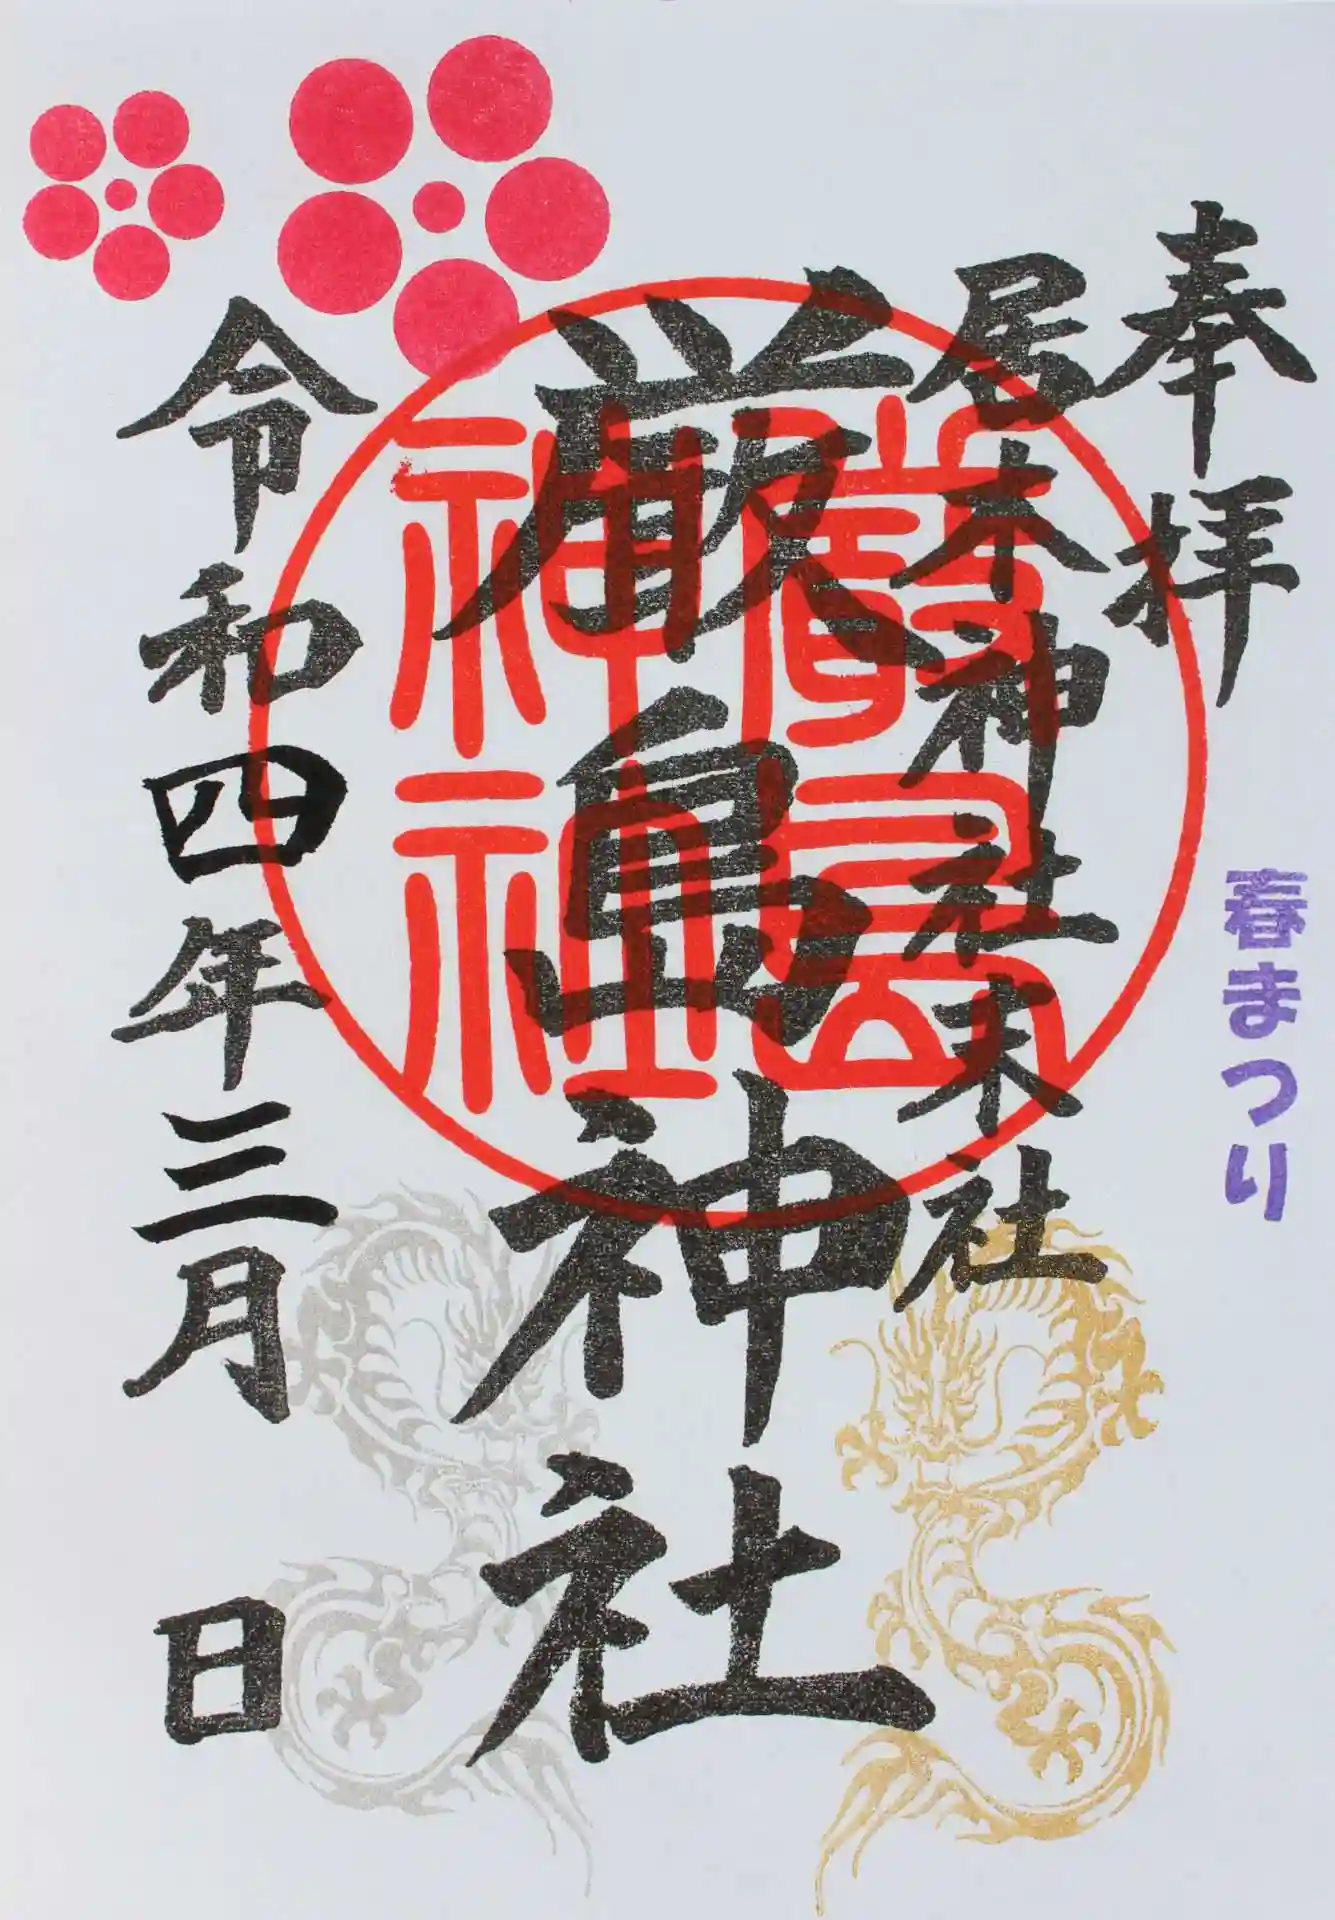 奉拝
春まつり
居木神社末社
厳島神社
厳島神社
令和四年三月 日